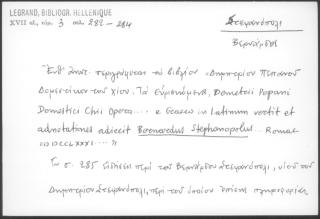 LEGRAND, BIBLIOGR. HELLENIQUE
XVII αἰ. τόμ. 3 σελ. 282 - 284
Στεφανόπολι
Βερνάρδος
Ἔνθ' ἀνωτ. περιγράφεται τὸ βιβλίον «Δημητρίου Πεπανοῦ
Δομεστίκου τοῦ Χίου. Τὰ Εὑρισκόμενα, Demetrii Pepani
Domestici Chii Opera .... e Graeco in Latinum vertit et
adnotationes adiecit Bernardus Stephanopolus ... Romae
Τῇ σ. 285 εἰδήσεις περὶ τοῦ Βερνάρδου Στεφανόπολι, υἱοῦ τοῦ
Δημητρίου Στεφανόπολι, περὶ τοῦ ὁποίου ἐπίσης πληροφορίαι.